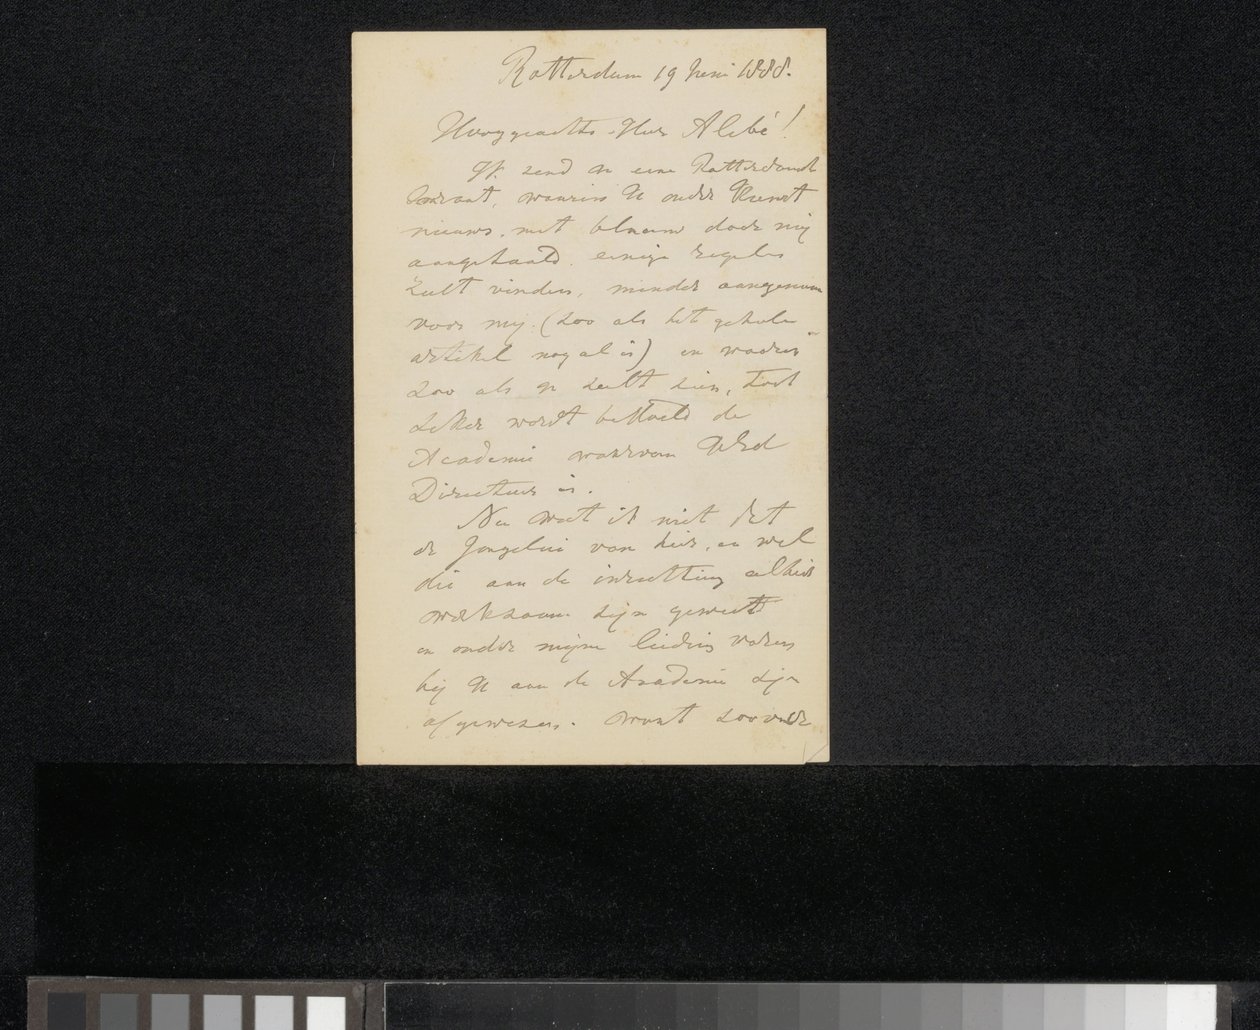 Rotterdam 19 Juni 1888.
Hooggeachte Heer Allebé!
Ik zend u eene Rotterdamsch
Courant, waarin U onder Kunst
nieuws, met blauw door mij
aangehaald eenige regels
zult vinden, minder aangenaam
voor mij (zoo als het geheele
artikel nog al is) en waarin
zoo als u zult zien, toch
zeker wordt bedoeld de
Academie waarvan UEd
Directeur is.
Nu weet ik niet dat
de Jongelui van hier, en wel
die aan de inrichting alhier
werkzaam zijn geweest
en onder mijne leiding waren
bij U aan de Academie zijn
afgewezen. want zoo